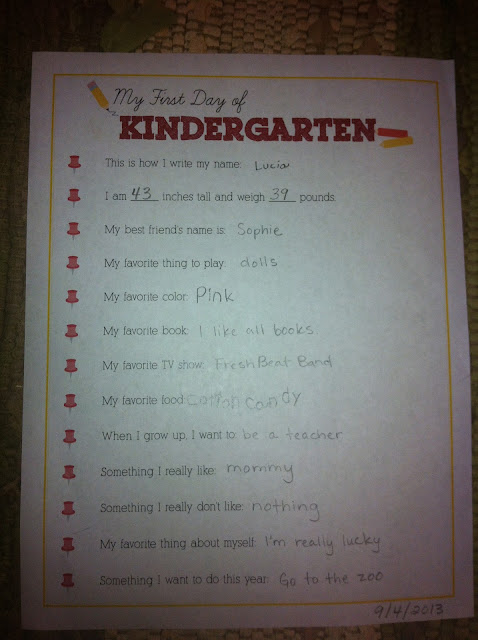 My First Day of
KINDERGARTEN
This is how I write my name: Lucia
I am 43 inches tall and weigh 39 pounds.
My best friend's name is: Sophie
My favorite thing to play: dolls
My favorite color: Pink
My favorite book: I like all books.
My favorite TV show: Fresh Beat Band
My favorite food: Cotton Candy
When I grow up, I want to: be a teacher
Something I really like: mommy
Something I really don't like: nothing
My favorite thing about myself: I'm really lucky
Something I want to do this year: Go to the zoo
9/4/2013